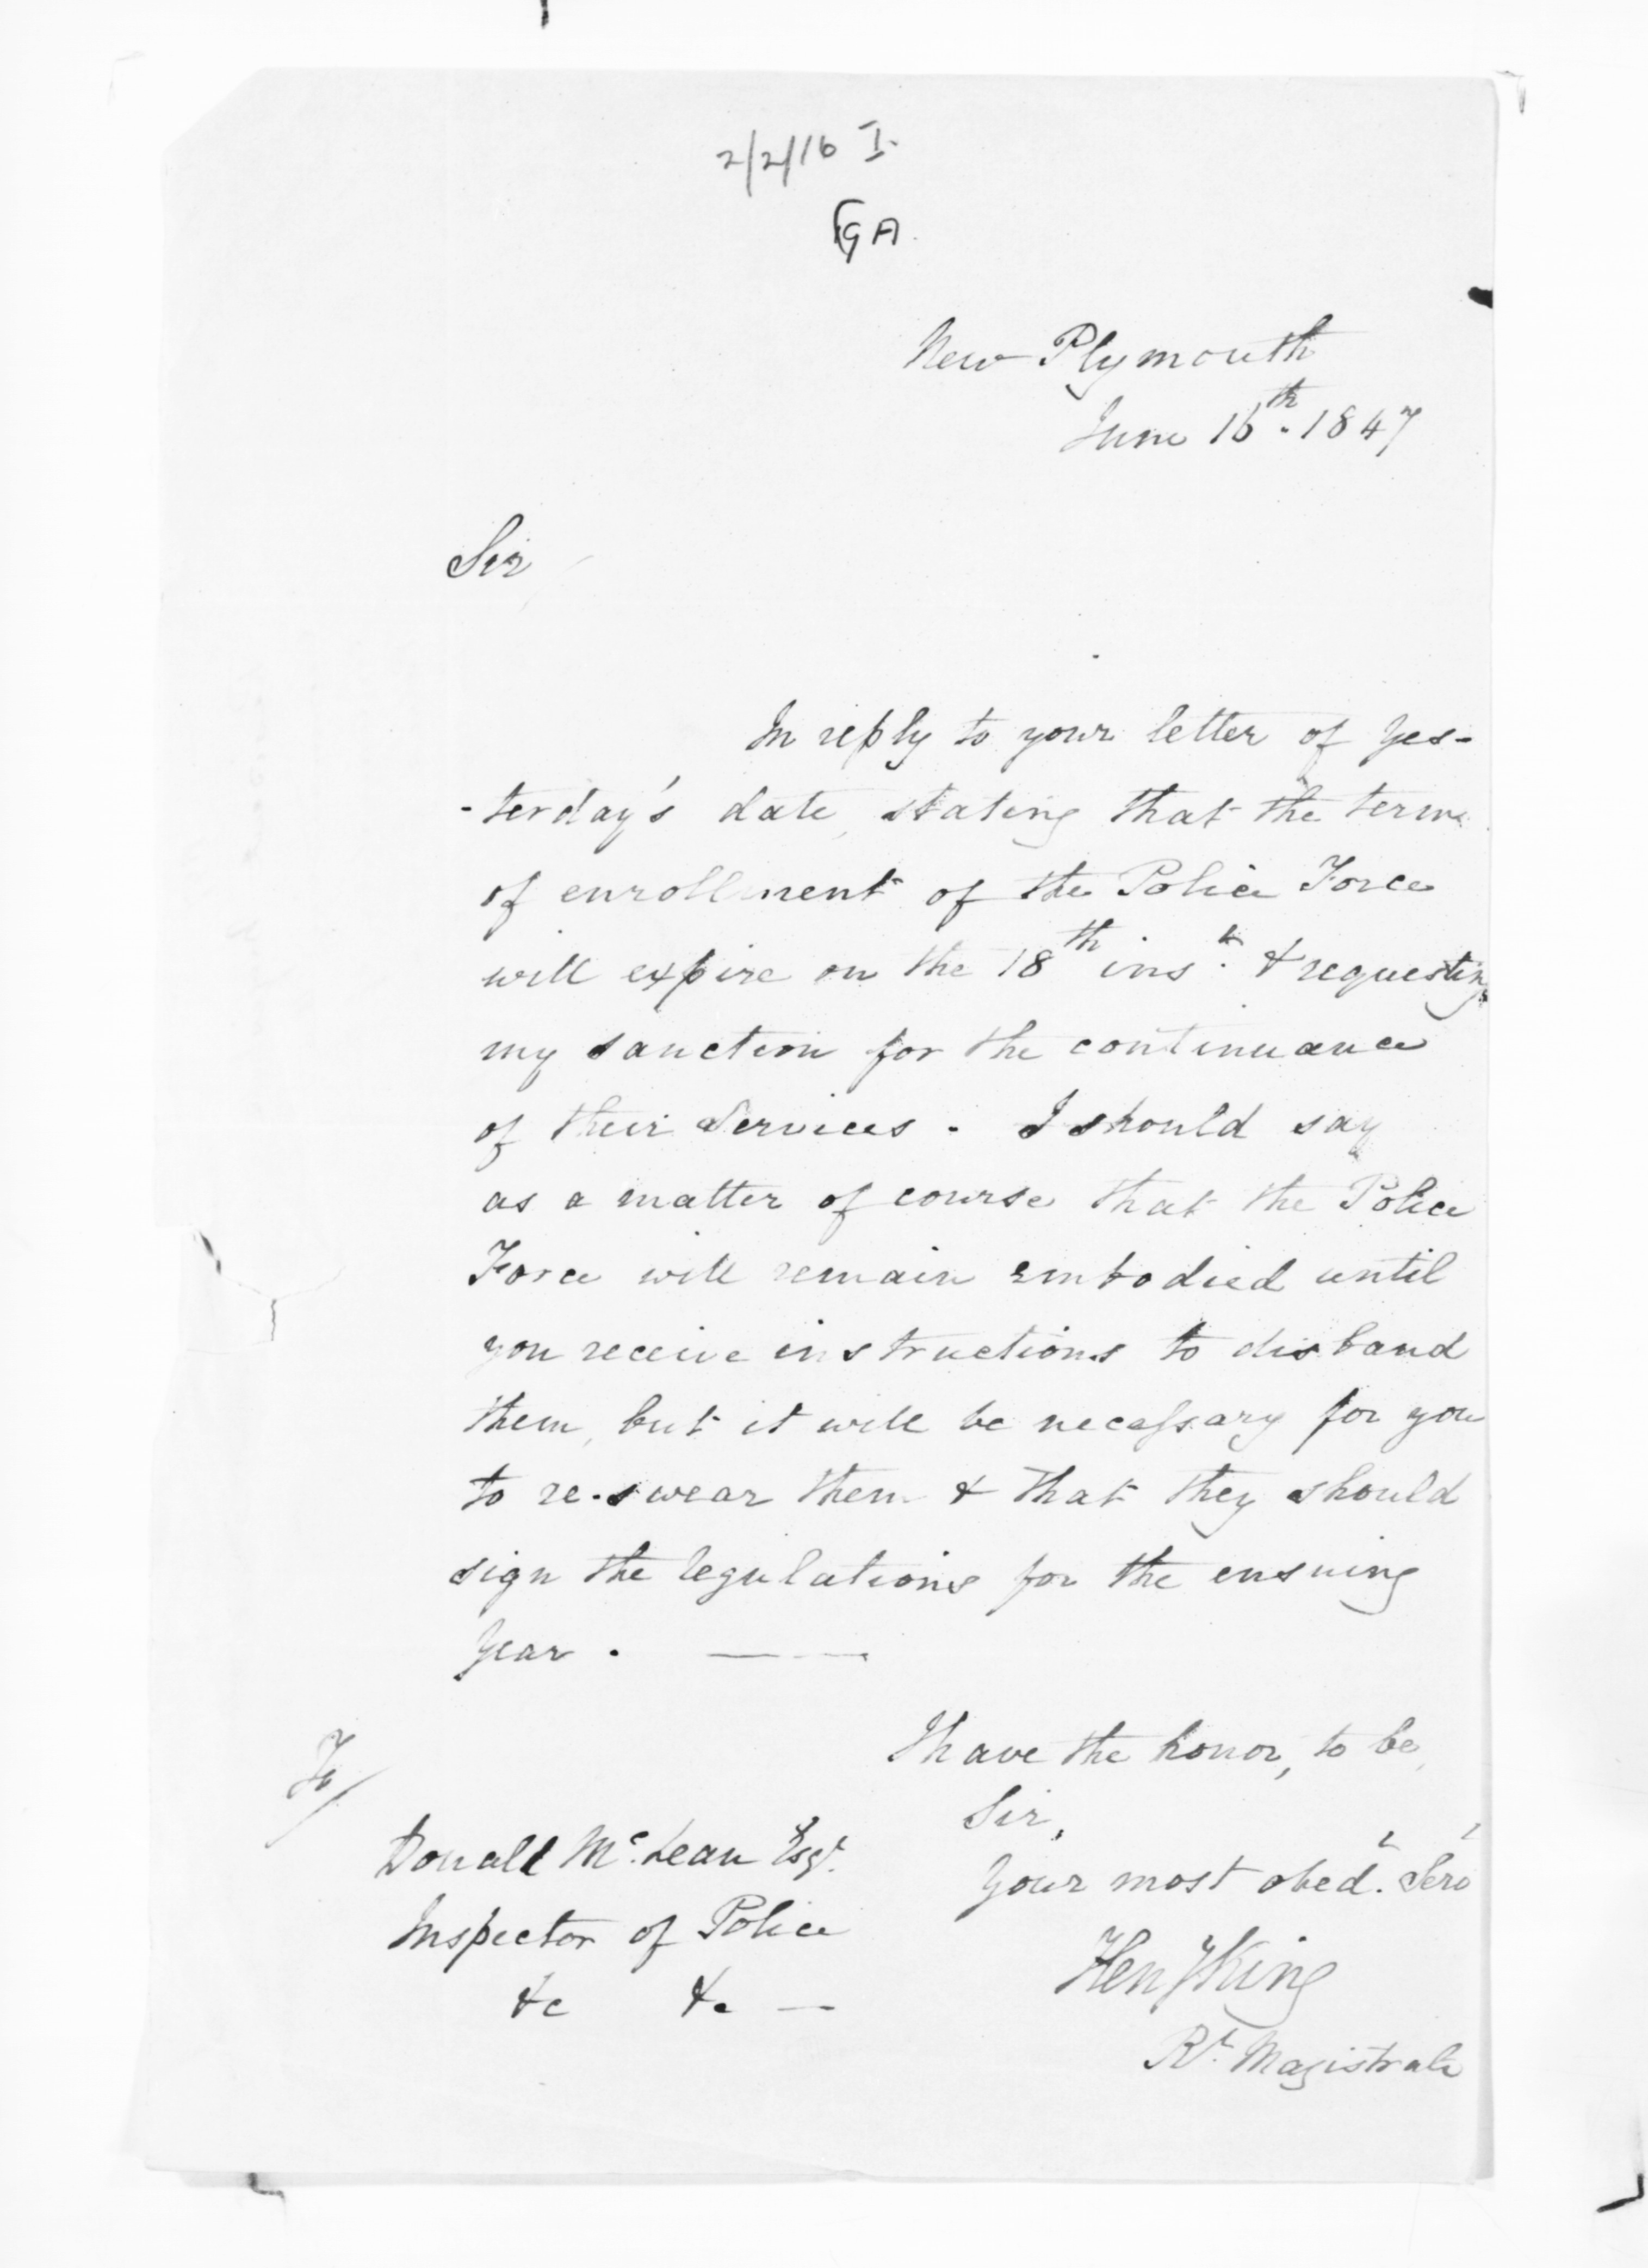 2/2/16 I.
New Plymouth
June 16th. 1847
Sir
In reply to your letter of yes-
-terday's date, stating that the term
of enrollment of the Police Force
will expire on the 18th inst. & requesting
my sanction for the continuance
of their Services. I should say
as a matter of course that the Police
Force will remain embodied until
you receive instructions to disband
them, but it will be necessary for you
to re-swear them & that they should
sign the regulations for the ensuing
year.
I have the honor, to be,
Sir,
Your most obedt. Servt
Heny King
Rt. Magistrate
To/
Donald McLean Esqr.
Inspector of Police
&c &c